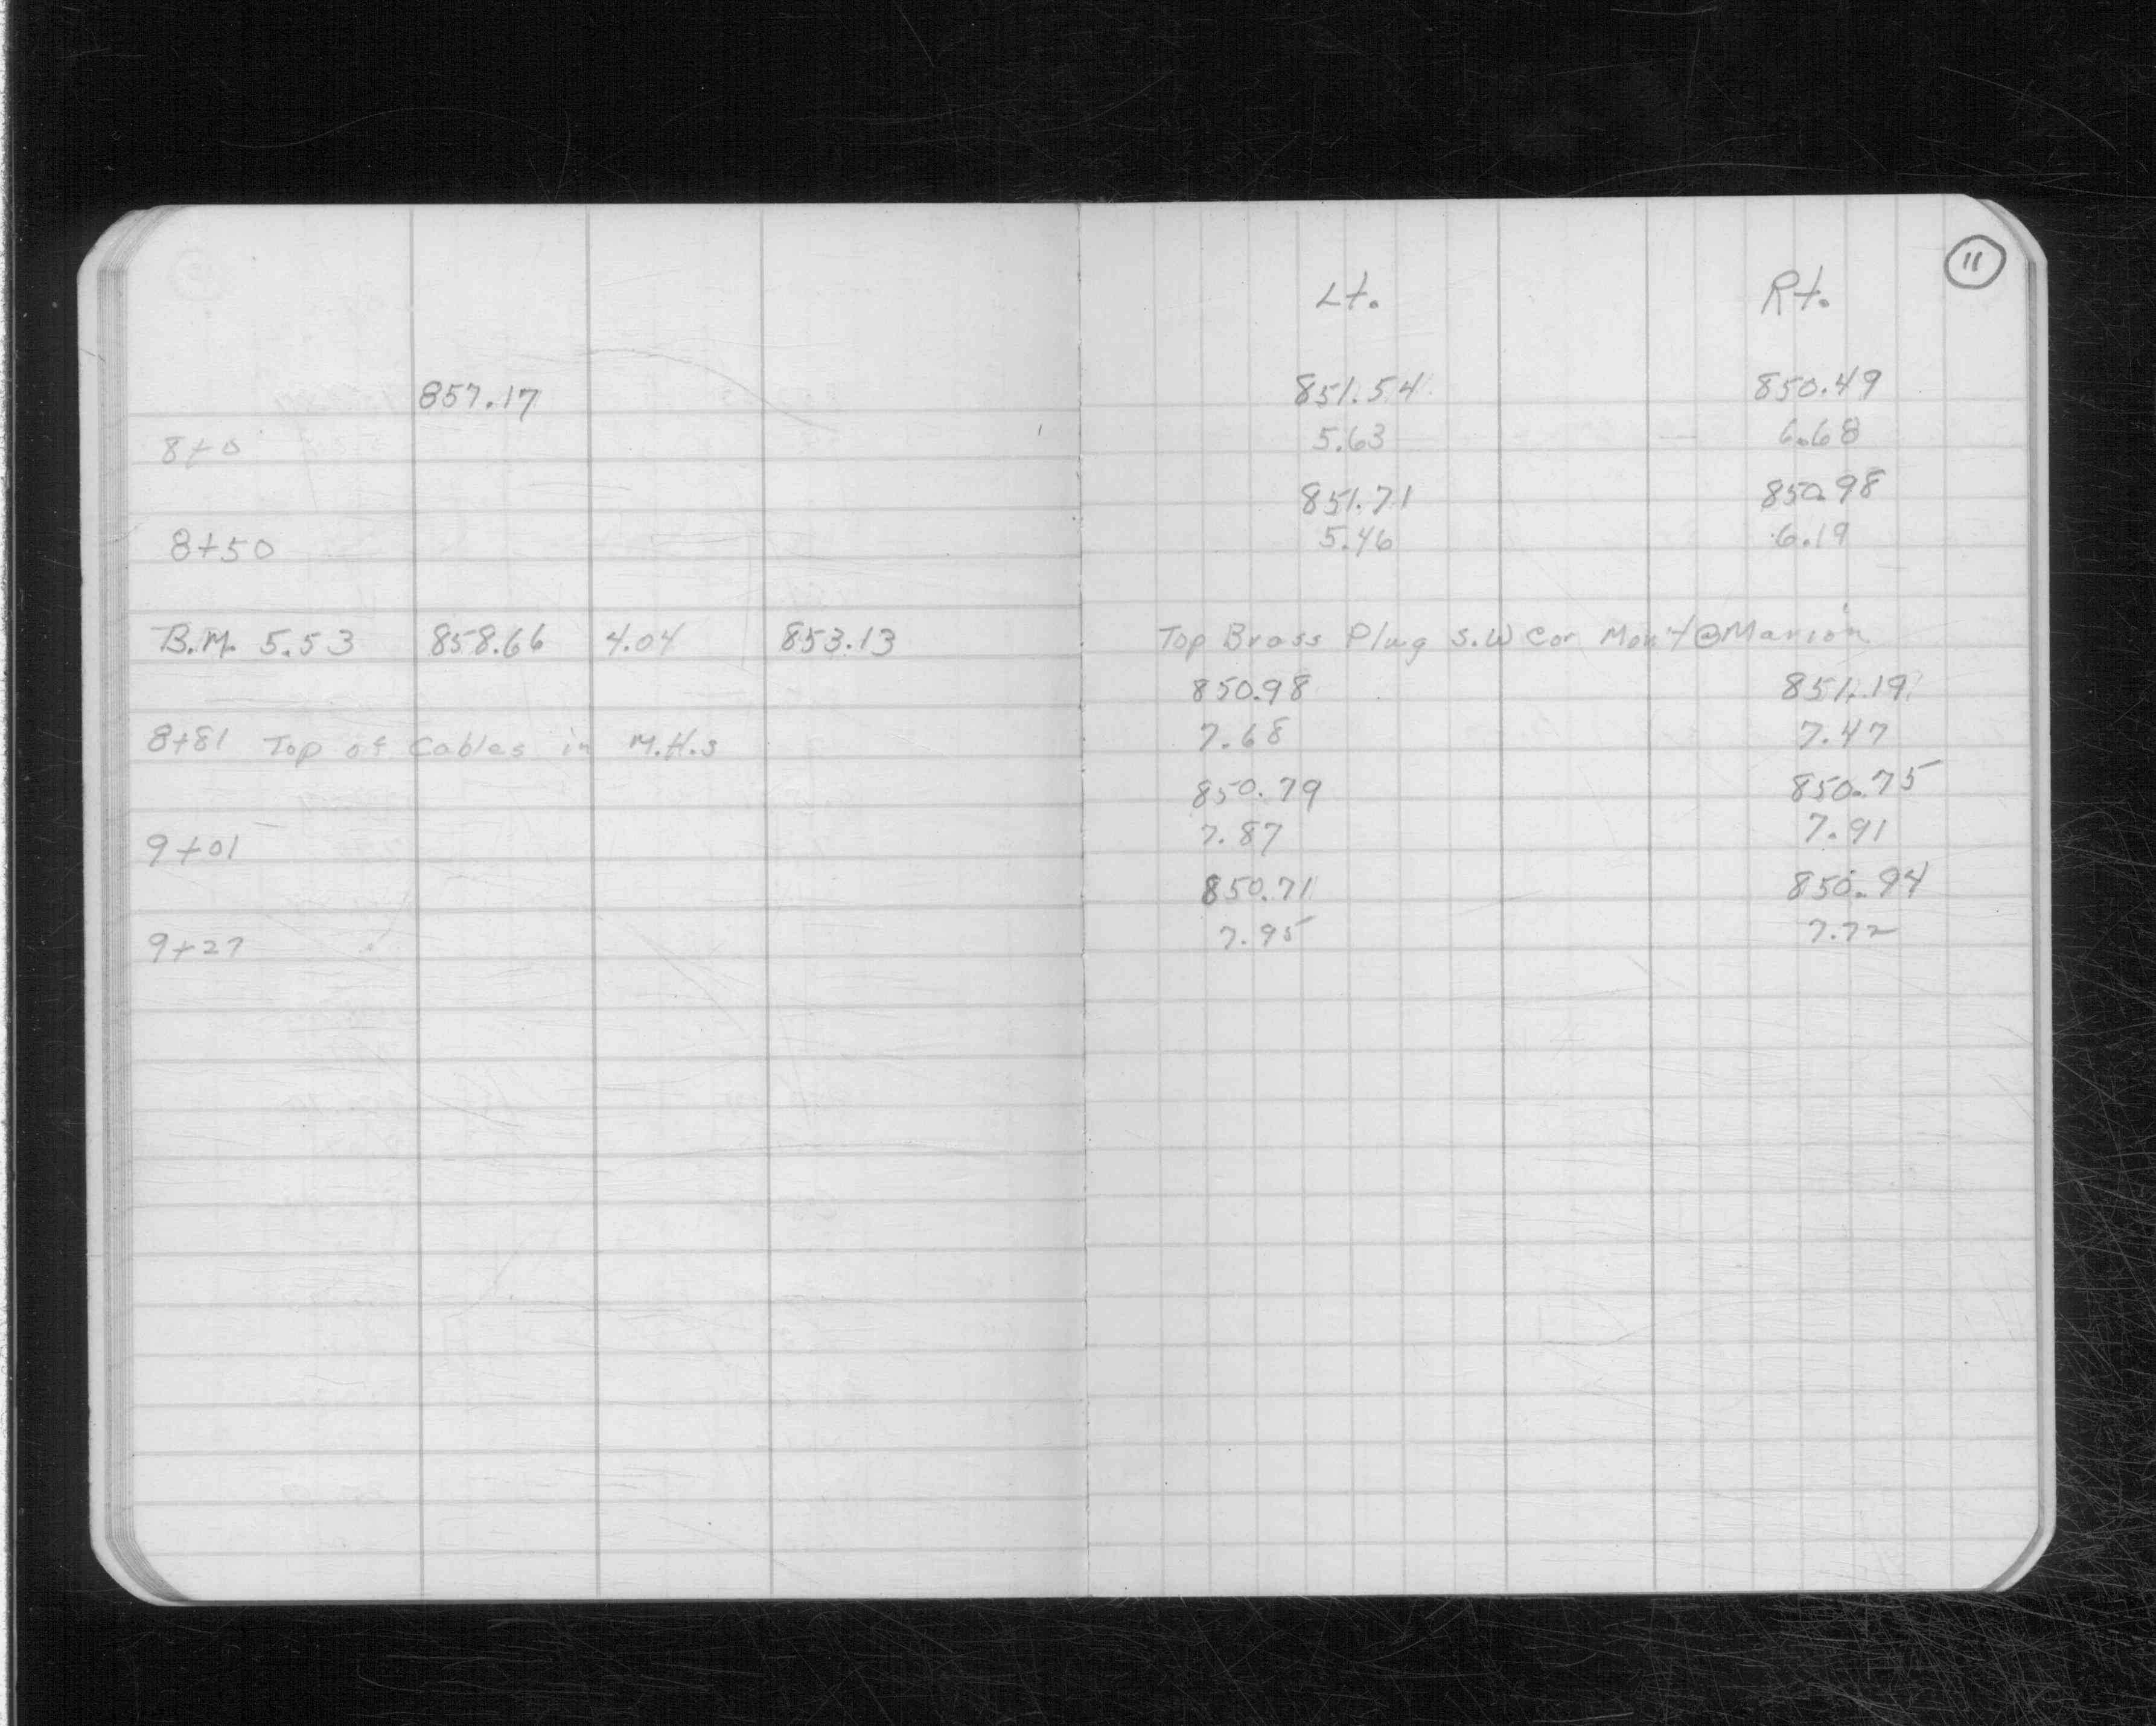 11
Lt. Rt.
857.17 851.54 850.49
8+0 5.63 6.68
851.71 850.98
8+50 5.46 6.19
B.M. 5.53 858.66 4.04 853.13 Top Brass Plug S.W Cor Mon't @ Marion
850.98 851.19
8+81 Top of Cables in M.H.s 7.68 7.47
850.79 850.75
9+01 7.87 7.91
850.71 850.94
9+27 7.95 7.72